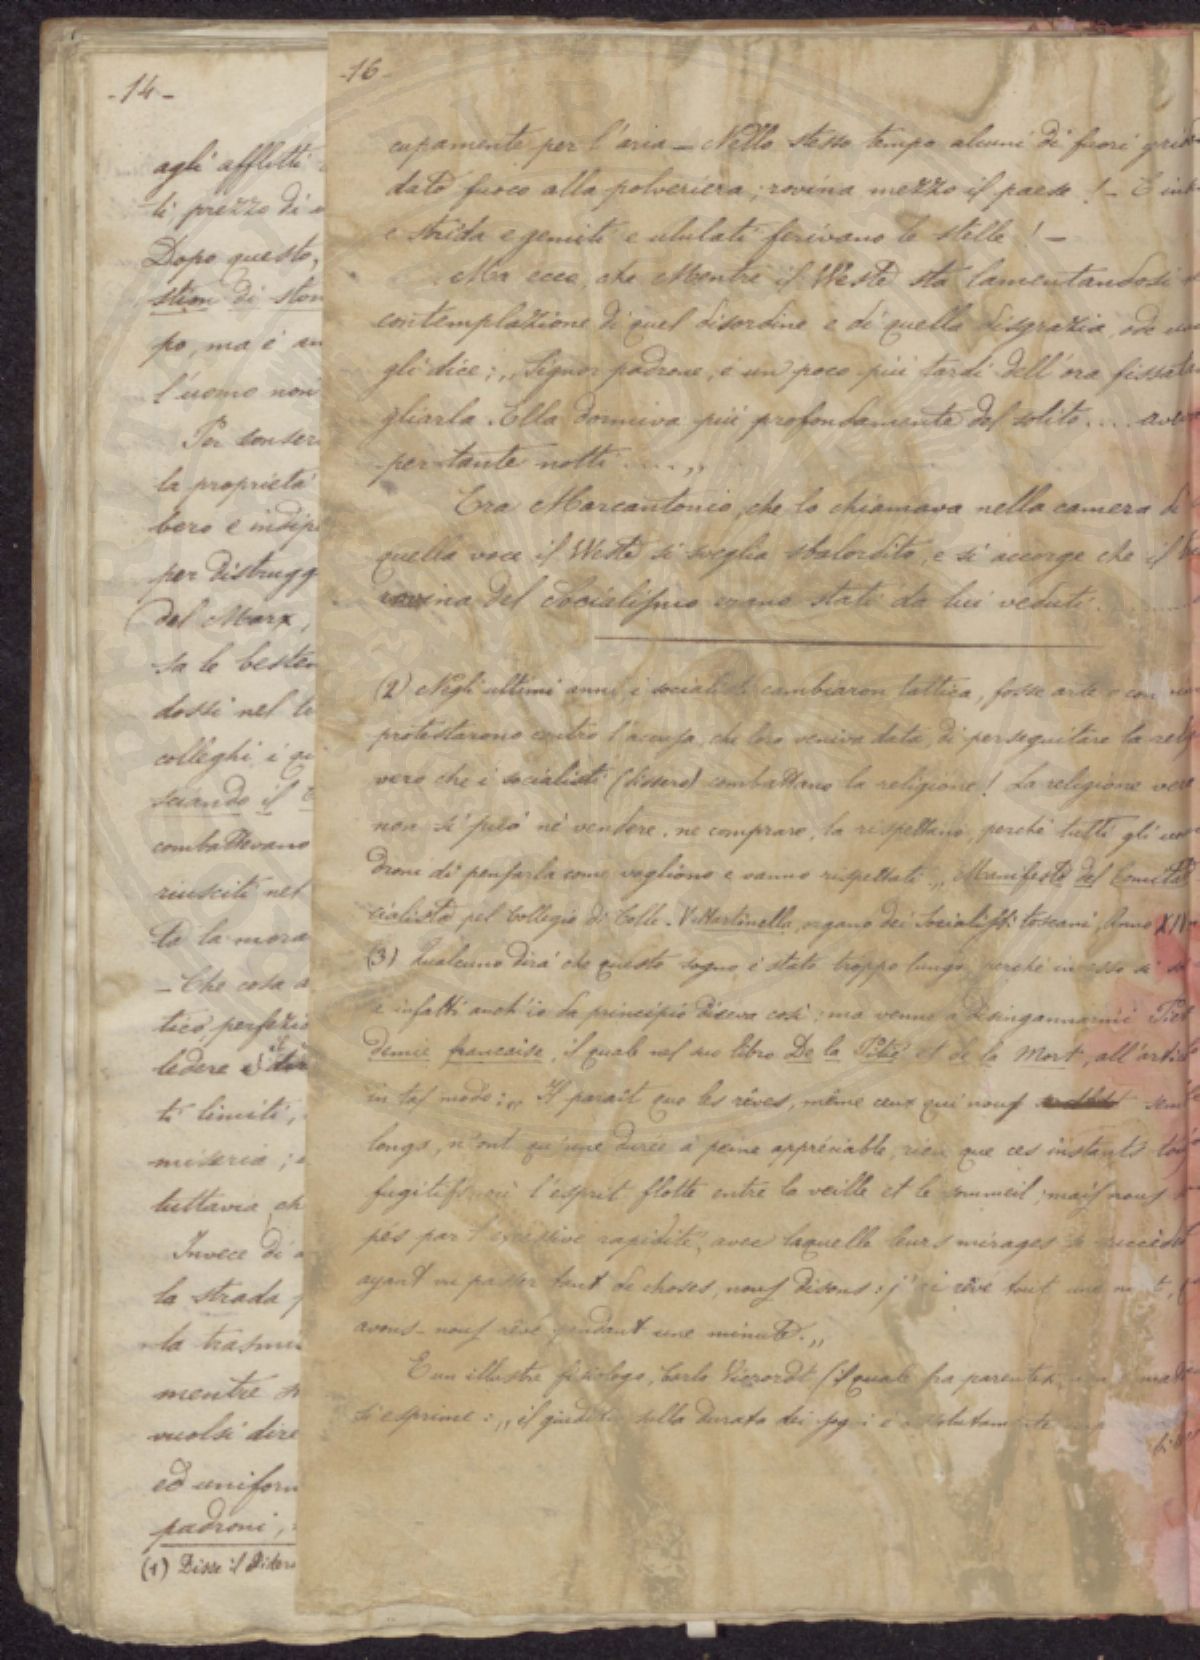 -14-
agli afflitti
ti, prezzo di
Dopo questo,
stion di stom
po, ma è an
l'uomo non
Per conser
la proprietà
bero e indip
per distrugg
del Marx,
sa le bestem
dossi nel te
colleghi, i qu
sciando il
combattevano
riusciti nel
ta la mora
- Che cosa
tico, perfezio
ledere
ti limiti,
miseria;
tuttavia, ch
Invece di
la strada
la trasmi
mentre
vuolsi dire
ed uniform
padroni,
(1) Disse il Didero
-16-
cupamente per l'aria - Nello stesso tempo alcuni di fuori grid
dato fuoco alla polveriera; rovina mezzo il paese! - E int
e strida e gemiti e ululati ferivano le stelle! -
Ma ecco, che Mentre il Weste sta lamentandosi
contemplazione di quel disordine e di quella disgrazia, ode
gli dice: „Signor padrone, è un poco più tardi dell'ora fissata
gliarla. Ella dormiva più profondamente del solito.... avev
per tante notti ....„
Era Marcantonio, che lo chiamava nella camera di
quella voce il Weste si sveglia sbalordito, e si accorge che il
rovina del Socialismo erano stati da lui veduti
(2) Negli ultimi anni i socialisti cambiaron tattica, fosse arte o con
protestarono contro l'accusa, che loro veniva data, di perseguitare la reli
vero che i socialisti (dissero) combattano la religione! La religione vera
non si può nè vendere, ne comprare, la rispettano, perchè tutti gli
droni di pensarla come vogliono e vanno rispettati „ Manifesto del Comitat
cialista pel Collegio di Colle - V. Martinella, organo dei Socialisti toscani, Anno XIV
(3) Qualcuno dirà che questo sogno è stato troppo lungo, perchè in esso si
e infatti anch'io da principio diceva così; ma venne a disingannarmi
demie francaise, il quale nel suo libro De la Pitiè et de la Mort, all'artic
in tal modo: „ Il parait que les rêves, même ceux qui nous sem
longs, n'ont qu'une durée à peine appréciable, rien que ces instants
fugitifs où l'esprit flotte entre la veille et le sommeil; mais nous
pés par l'excessive rapidité, avec laquelle leurs mirages se succèdent
ayant vu passer tant de choses, nous disons: j'ai rêvé tout une
avons-nous rêvé pendant une minute.„
E un illustre fisiologo, Carlo Vierordt (il quale fra parentesi
si esprime: „il giudizio sulla durata dei sogni è assolutamente